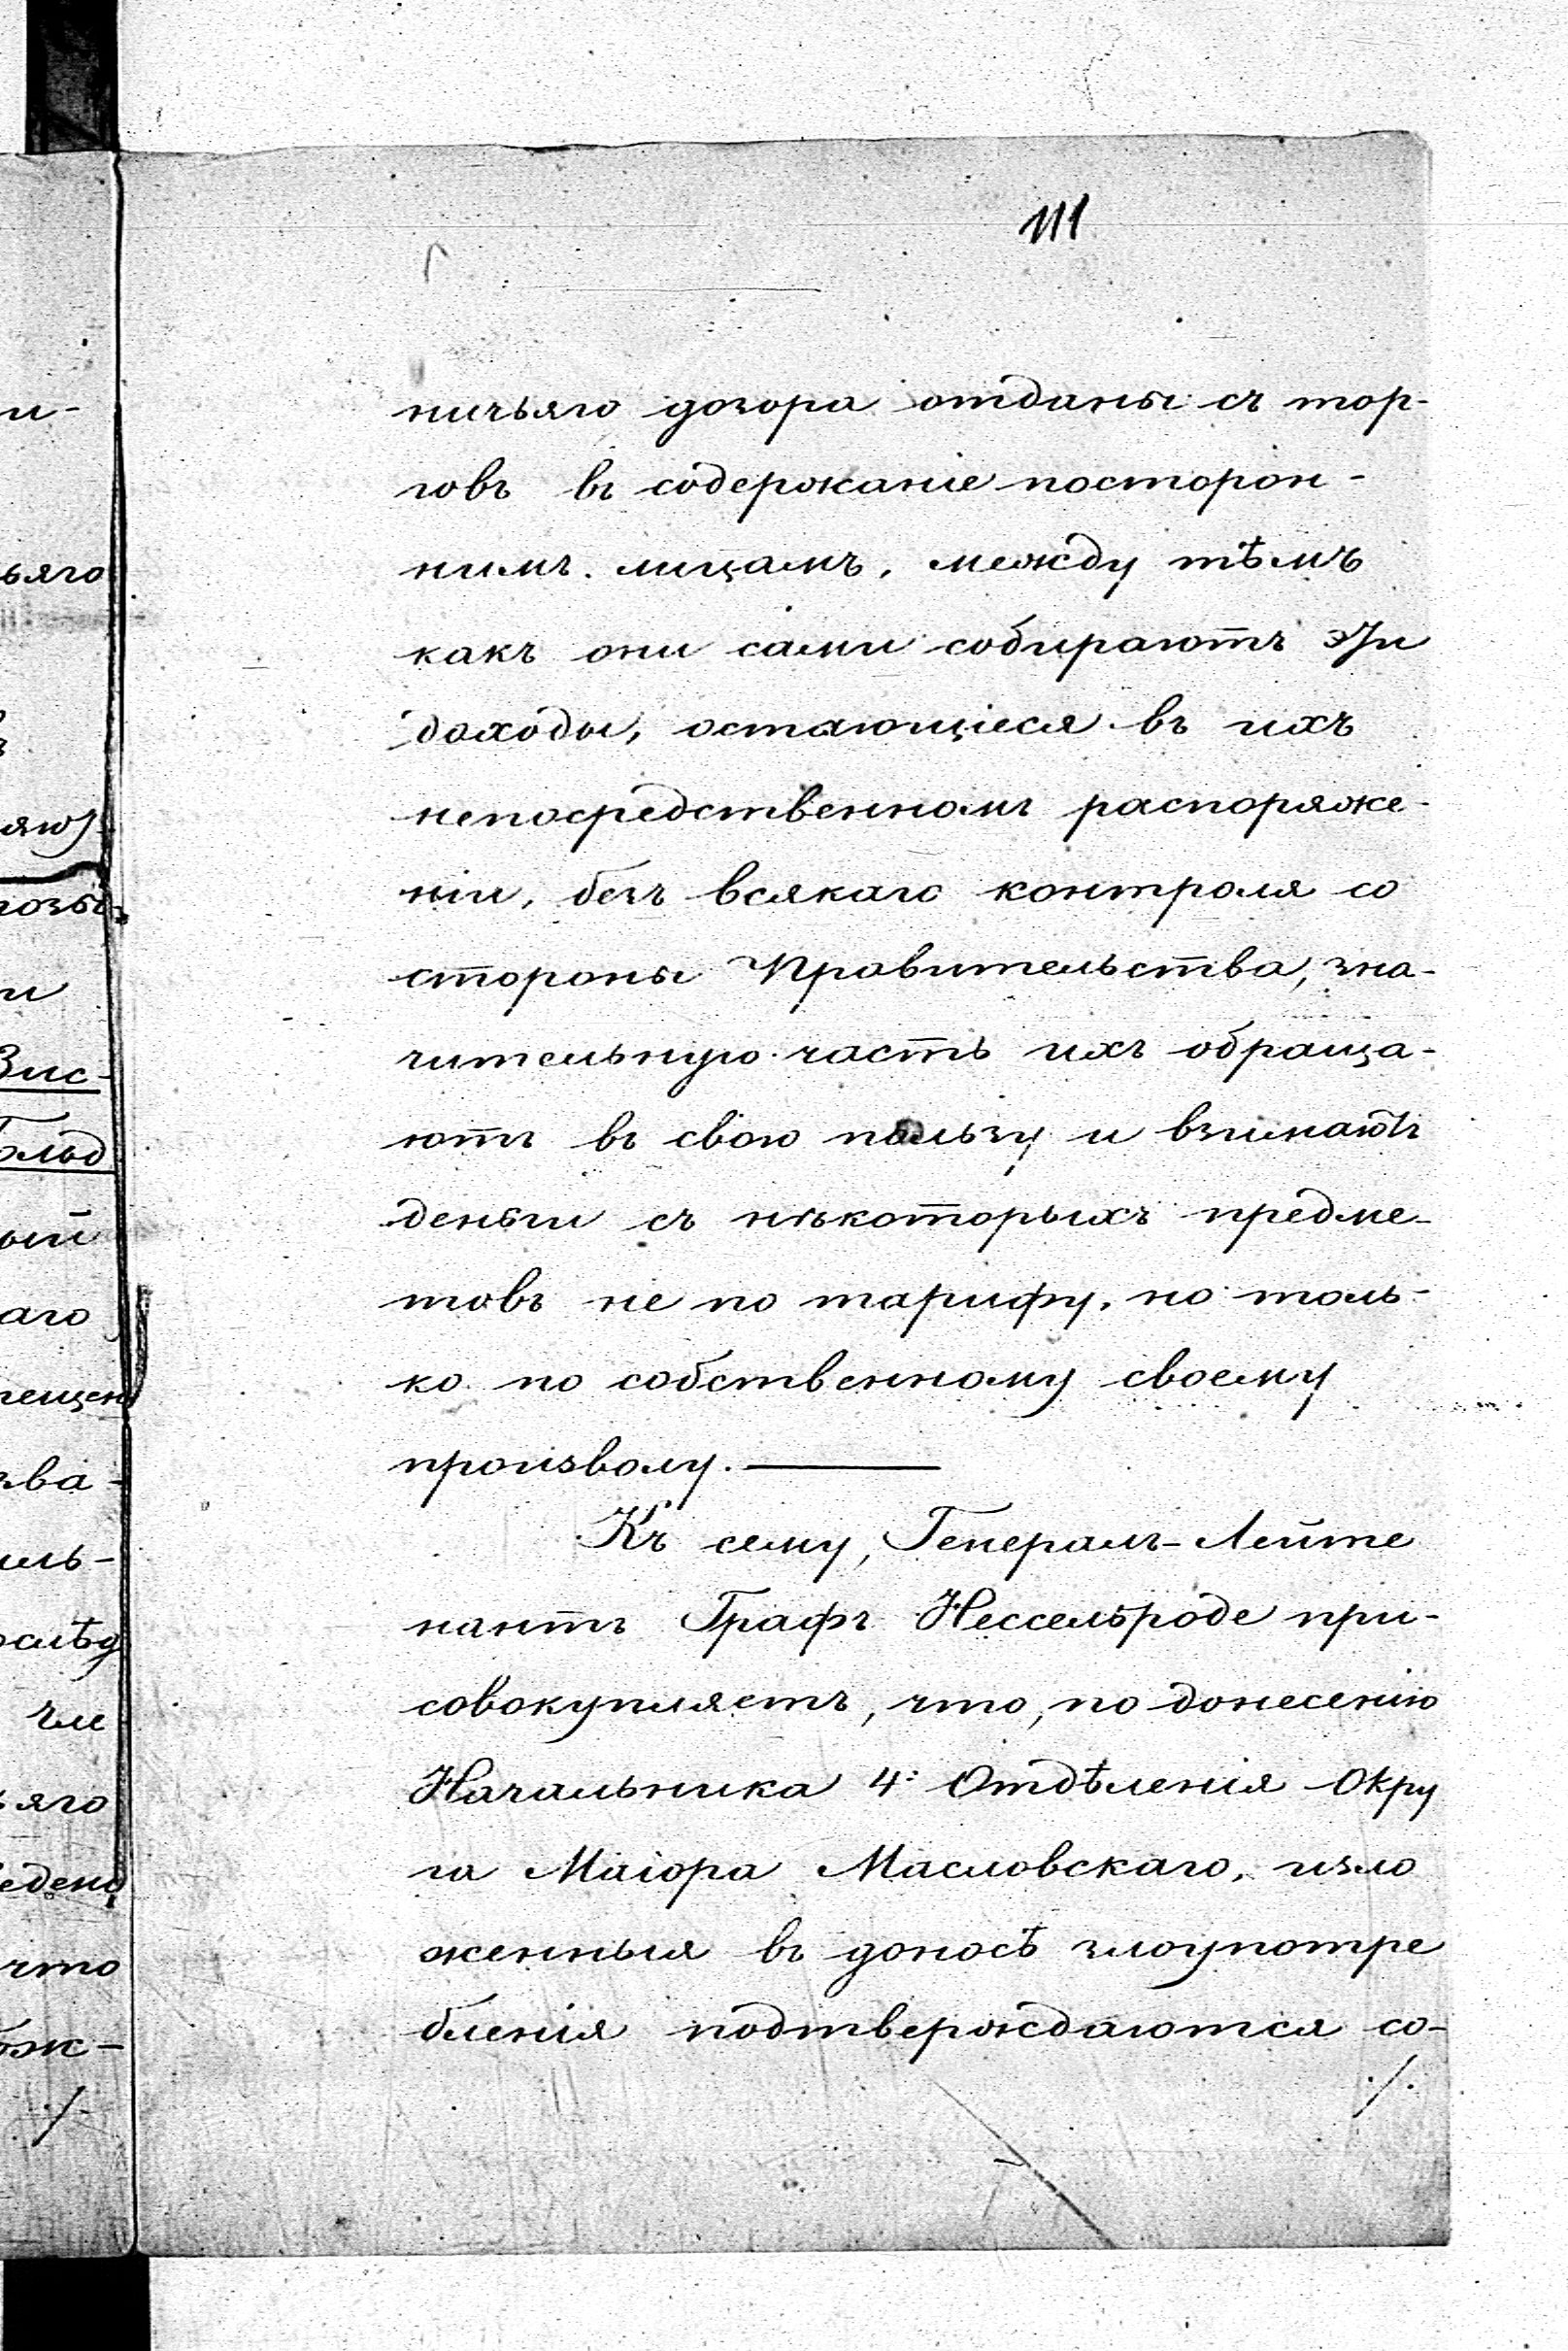 111
ничьяго дозора отданы съ тор-
говъ въ содержаніе посторон-
нимъ лицамъ, между тѣмъ
какъ они сами собираютъ эти
доходы, остающіеся въ ихъ
непосредственномъ распоряже-
ніи, безъ всякаго контроля со
стороны Правительства, зна-
чительную часть ихъ обраща-
ютъ въ свою пользу и взимаютъ
деньги съ нѣкоторыхъ предме-
товъ не по тарифу, но толь-
ко по собственному своему
произволу.
Къ сему, Генералъ-Лейте
нантъ Графъ Нессельроде при-
совокупляетъ, что, по донесенію
Начальника 4: Отдѣленія Окру
га Маіора Масловскаго, изло
женныя въ доносѣ злоупотре
бленія подтверждаются со-
./.